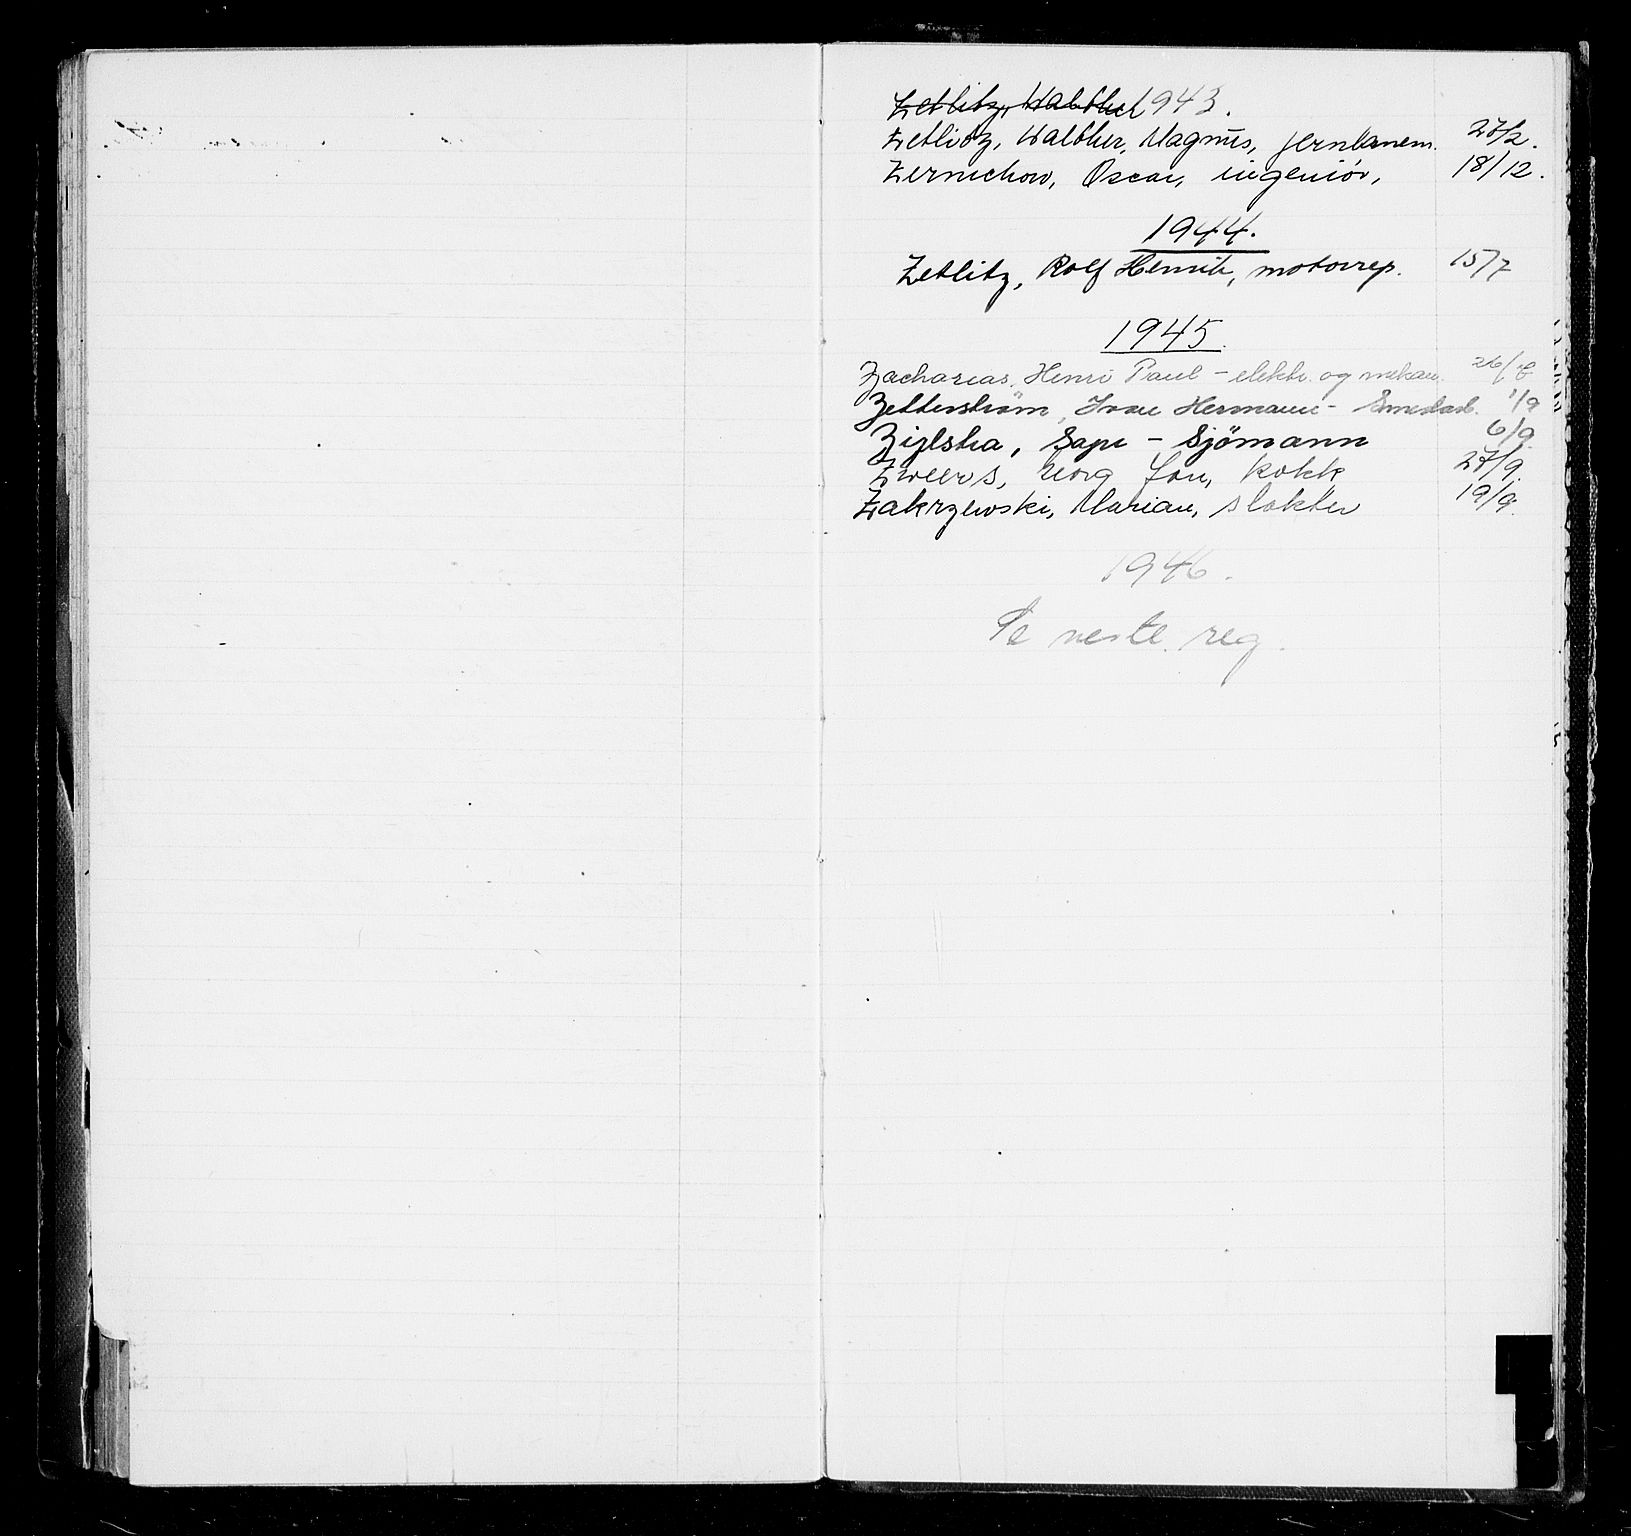 Zetlitz, Walther 1943.
Zetlitz, Walther, Magnus, jernbanem. 27/2.
Zernichow, Oscar, ingeniör, 18/12.
1944.
Zetlitz, Rolf Henrik, motorrep. 15/7
1945.
Zacharias, Henri Paul - elektr. og mekan. 26/
Zetterström, Ivan Hermann - Smedarb. 1/9
Zijlstra, - Sjömann 6/9.
Zweers, Jan, kokk 27/9.
Zakrzewski, Marian, slakter 19/9.
1946.
Se neste reg.